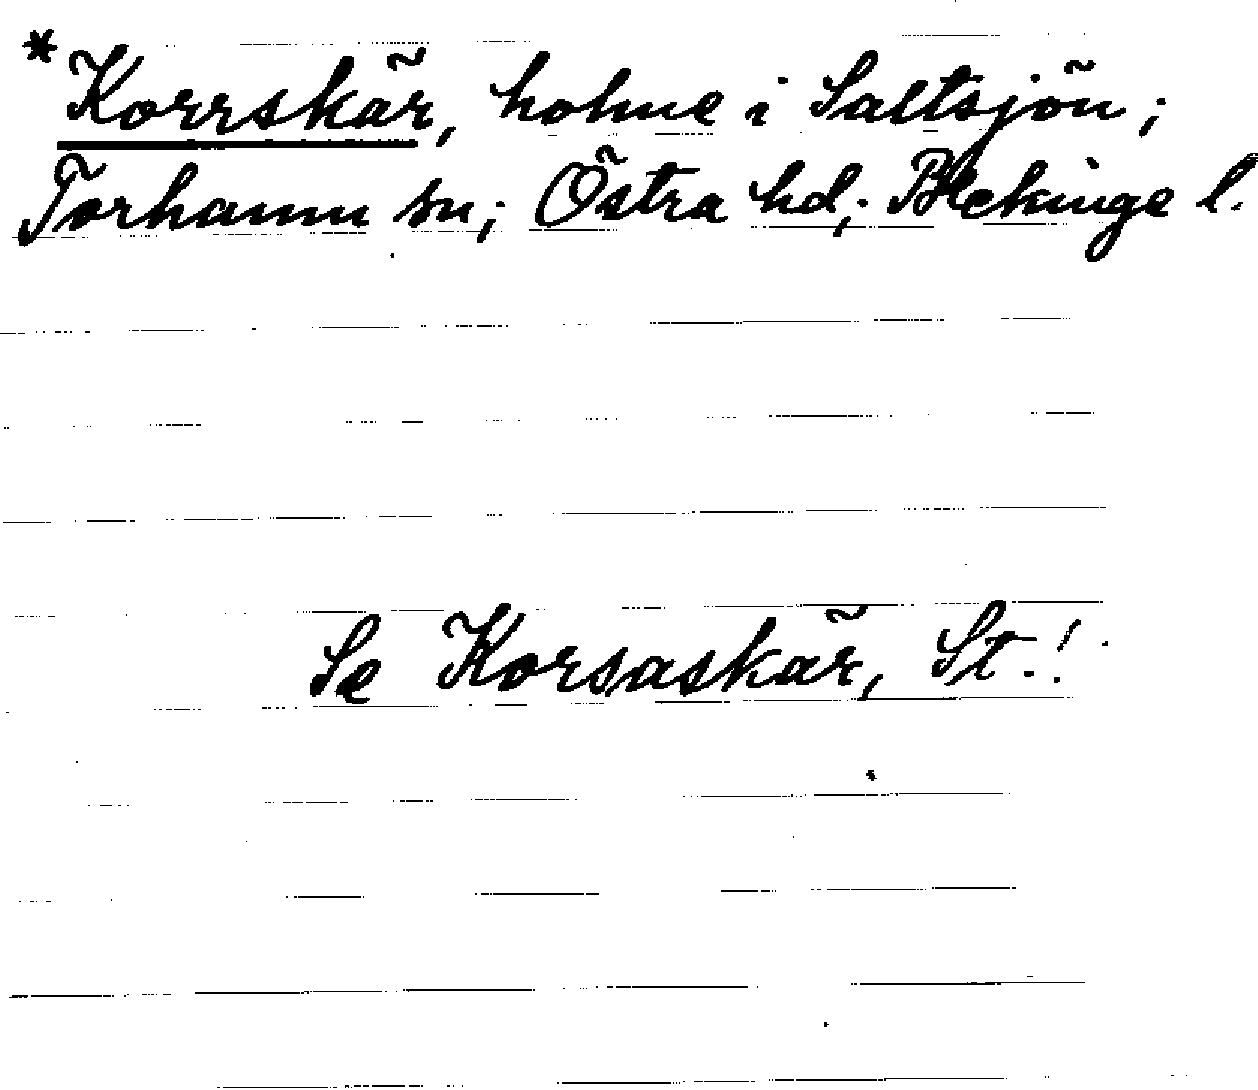 *Korrskär, holme i Saltsjön;
Torhamn sn; Östra hd; Blekinge l.
Se Korsaskär, St.!